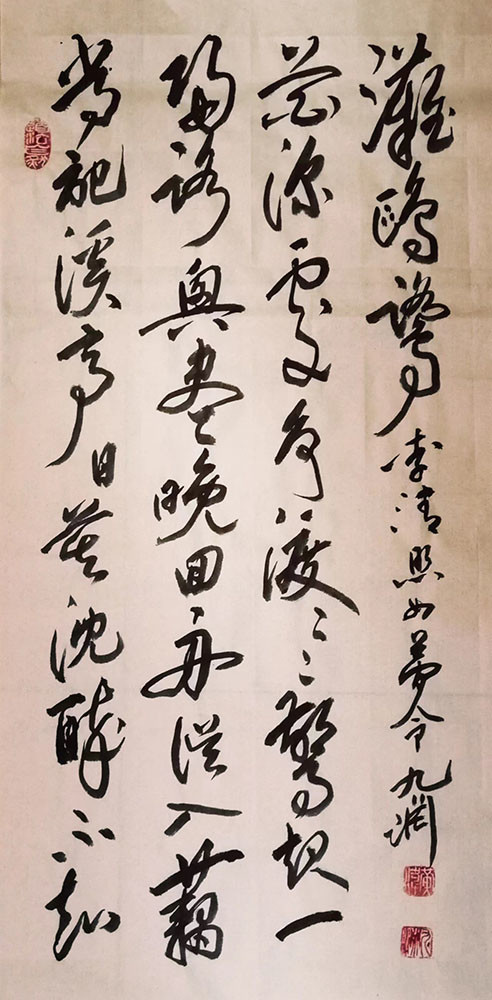 常記溪亭日莫沈醉不知
歸路興盡晚回舟誤入藕
花深處爭渡〻〻驚起一
灘鷗鷺 李清照如夢令 九淵